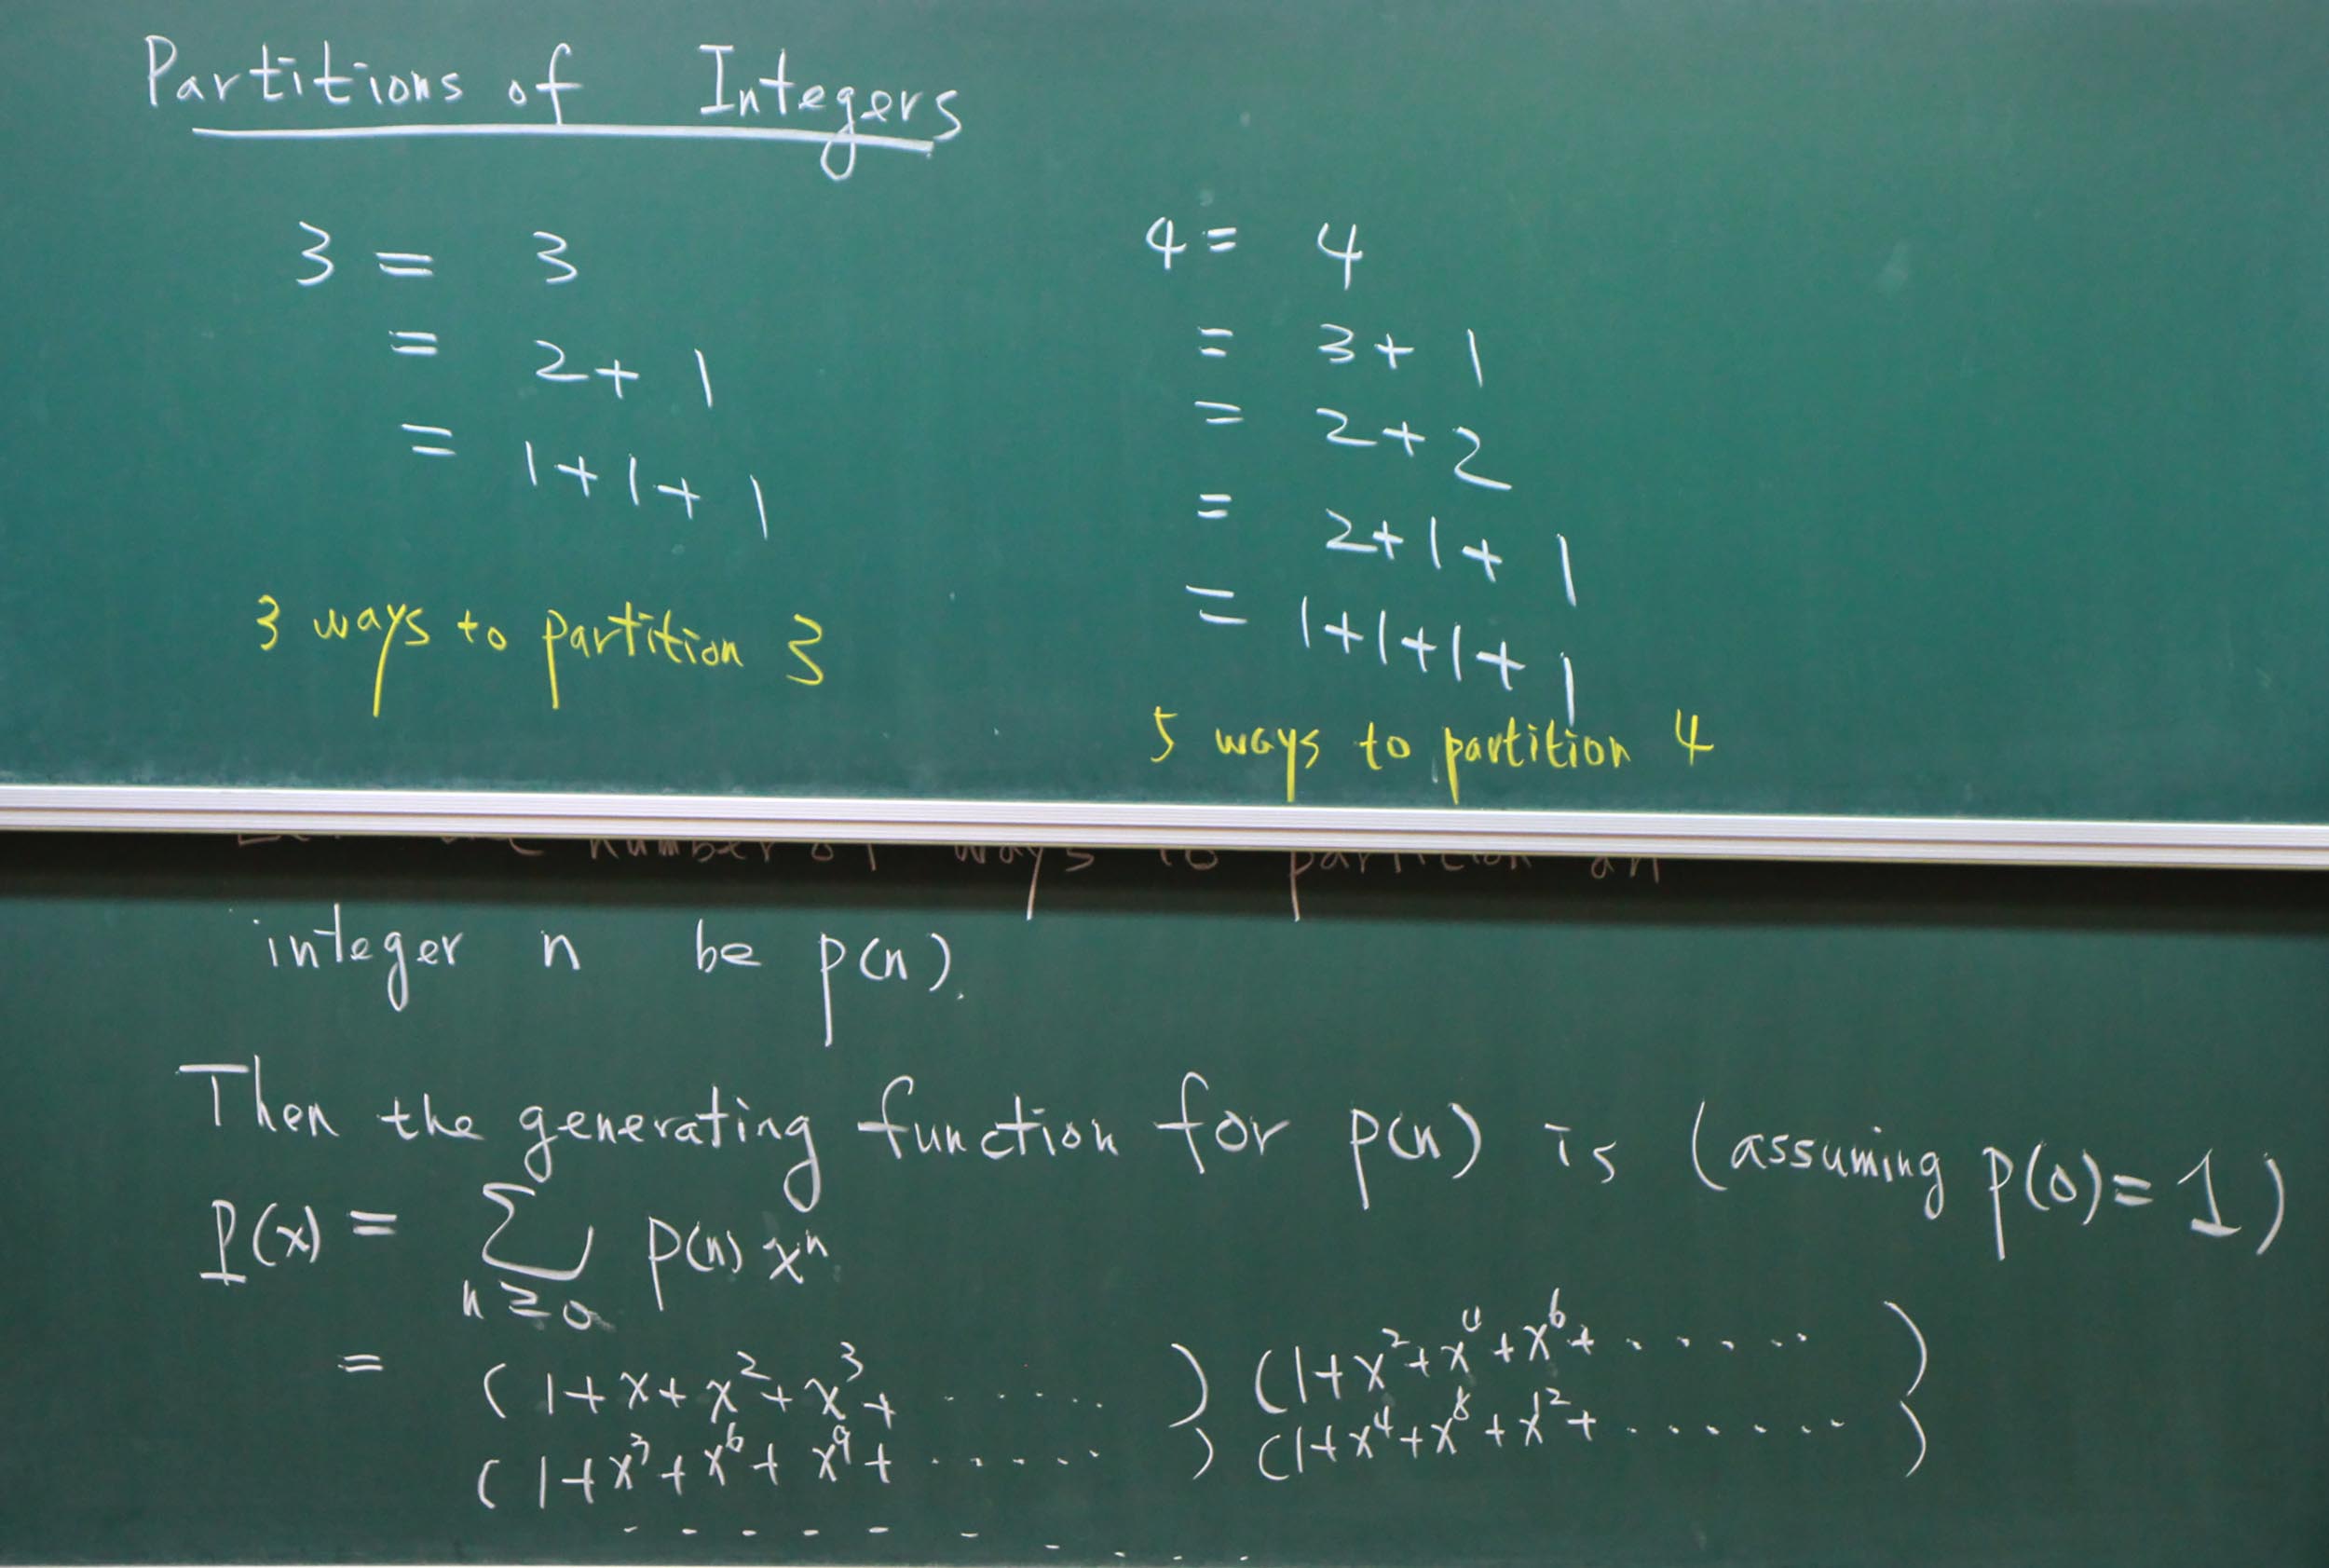 Partitions of Integers
3 = 3
= 2 + 1
= 1 + 1 + 1
3 ways to partition 3
4 = 4
= 3 + 1
= 2 + 2
= 2 + 1 + 1
= 1 + 1 + 1 + 1
5 ways to partition 4
number of ways to partition an
integer n be p(n).
Then the generating function for p(n) is (assuming p(0) = 1)
P(x) = ∑ p(n) xⁿ
n ≥ 0
= (1 + x + x² + x³ + ......) (1 + x² + x⁴ + x⁶ + ......)
(1 + x³ + x⁶ + x⁹ + ......) (1 + x⁴ + x⁸ + x¹² + ......)
- - - - - - - - - -